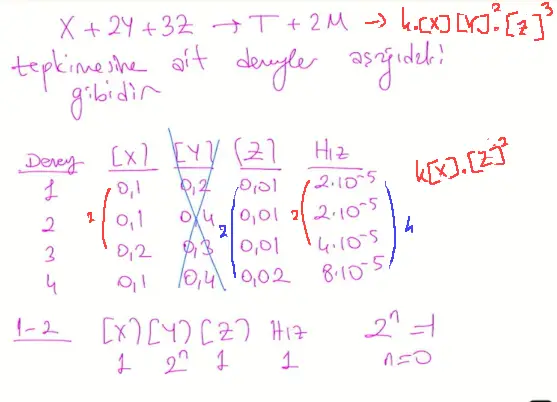 X + 2Y + 3Z → T + 2M → k.[X][Y]².[Z]³
tepkimesine ait deneyler aşağıdaki
gibidir
Deney [X] [Y] [Z] Hız
k[X].[Z]²
1 0,1 0,2 0,01 2.10⁻⁵
2 0,1 0,4 0,01 2.10⁻⁵
3 0,2 0,3 0,01 4.10⁻⁵
4 0,1 0,4 0,02 8.10⁻⁵
2 2 2 4
1-2 [X] [Y] [Z] Hız 2ⁿ=1
1 2ⁿ 1 1 n=0